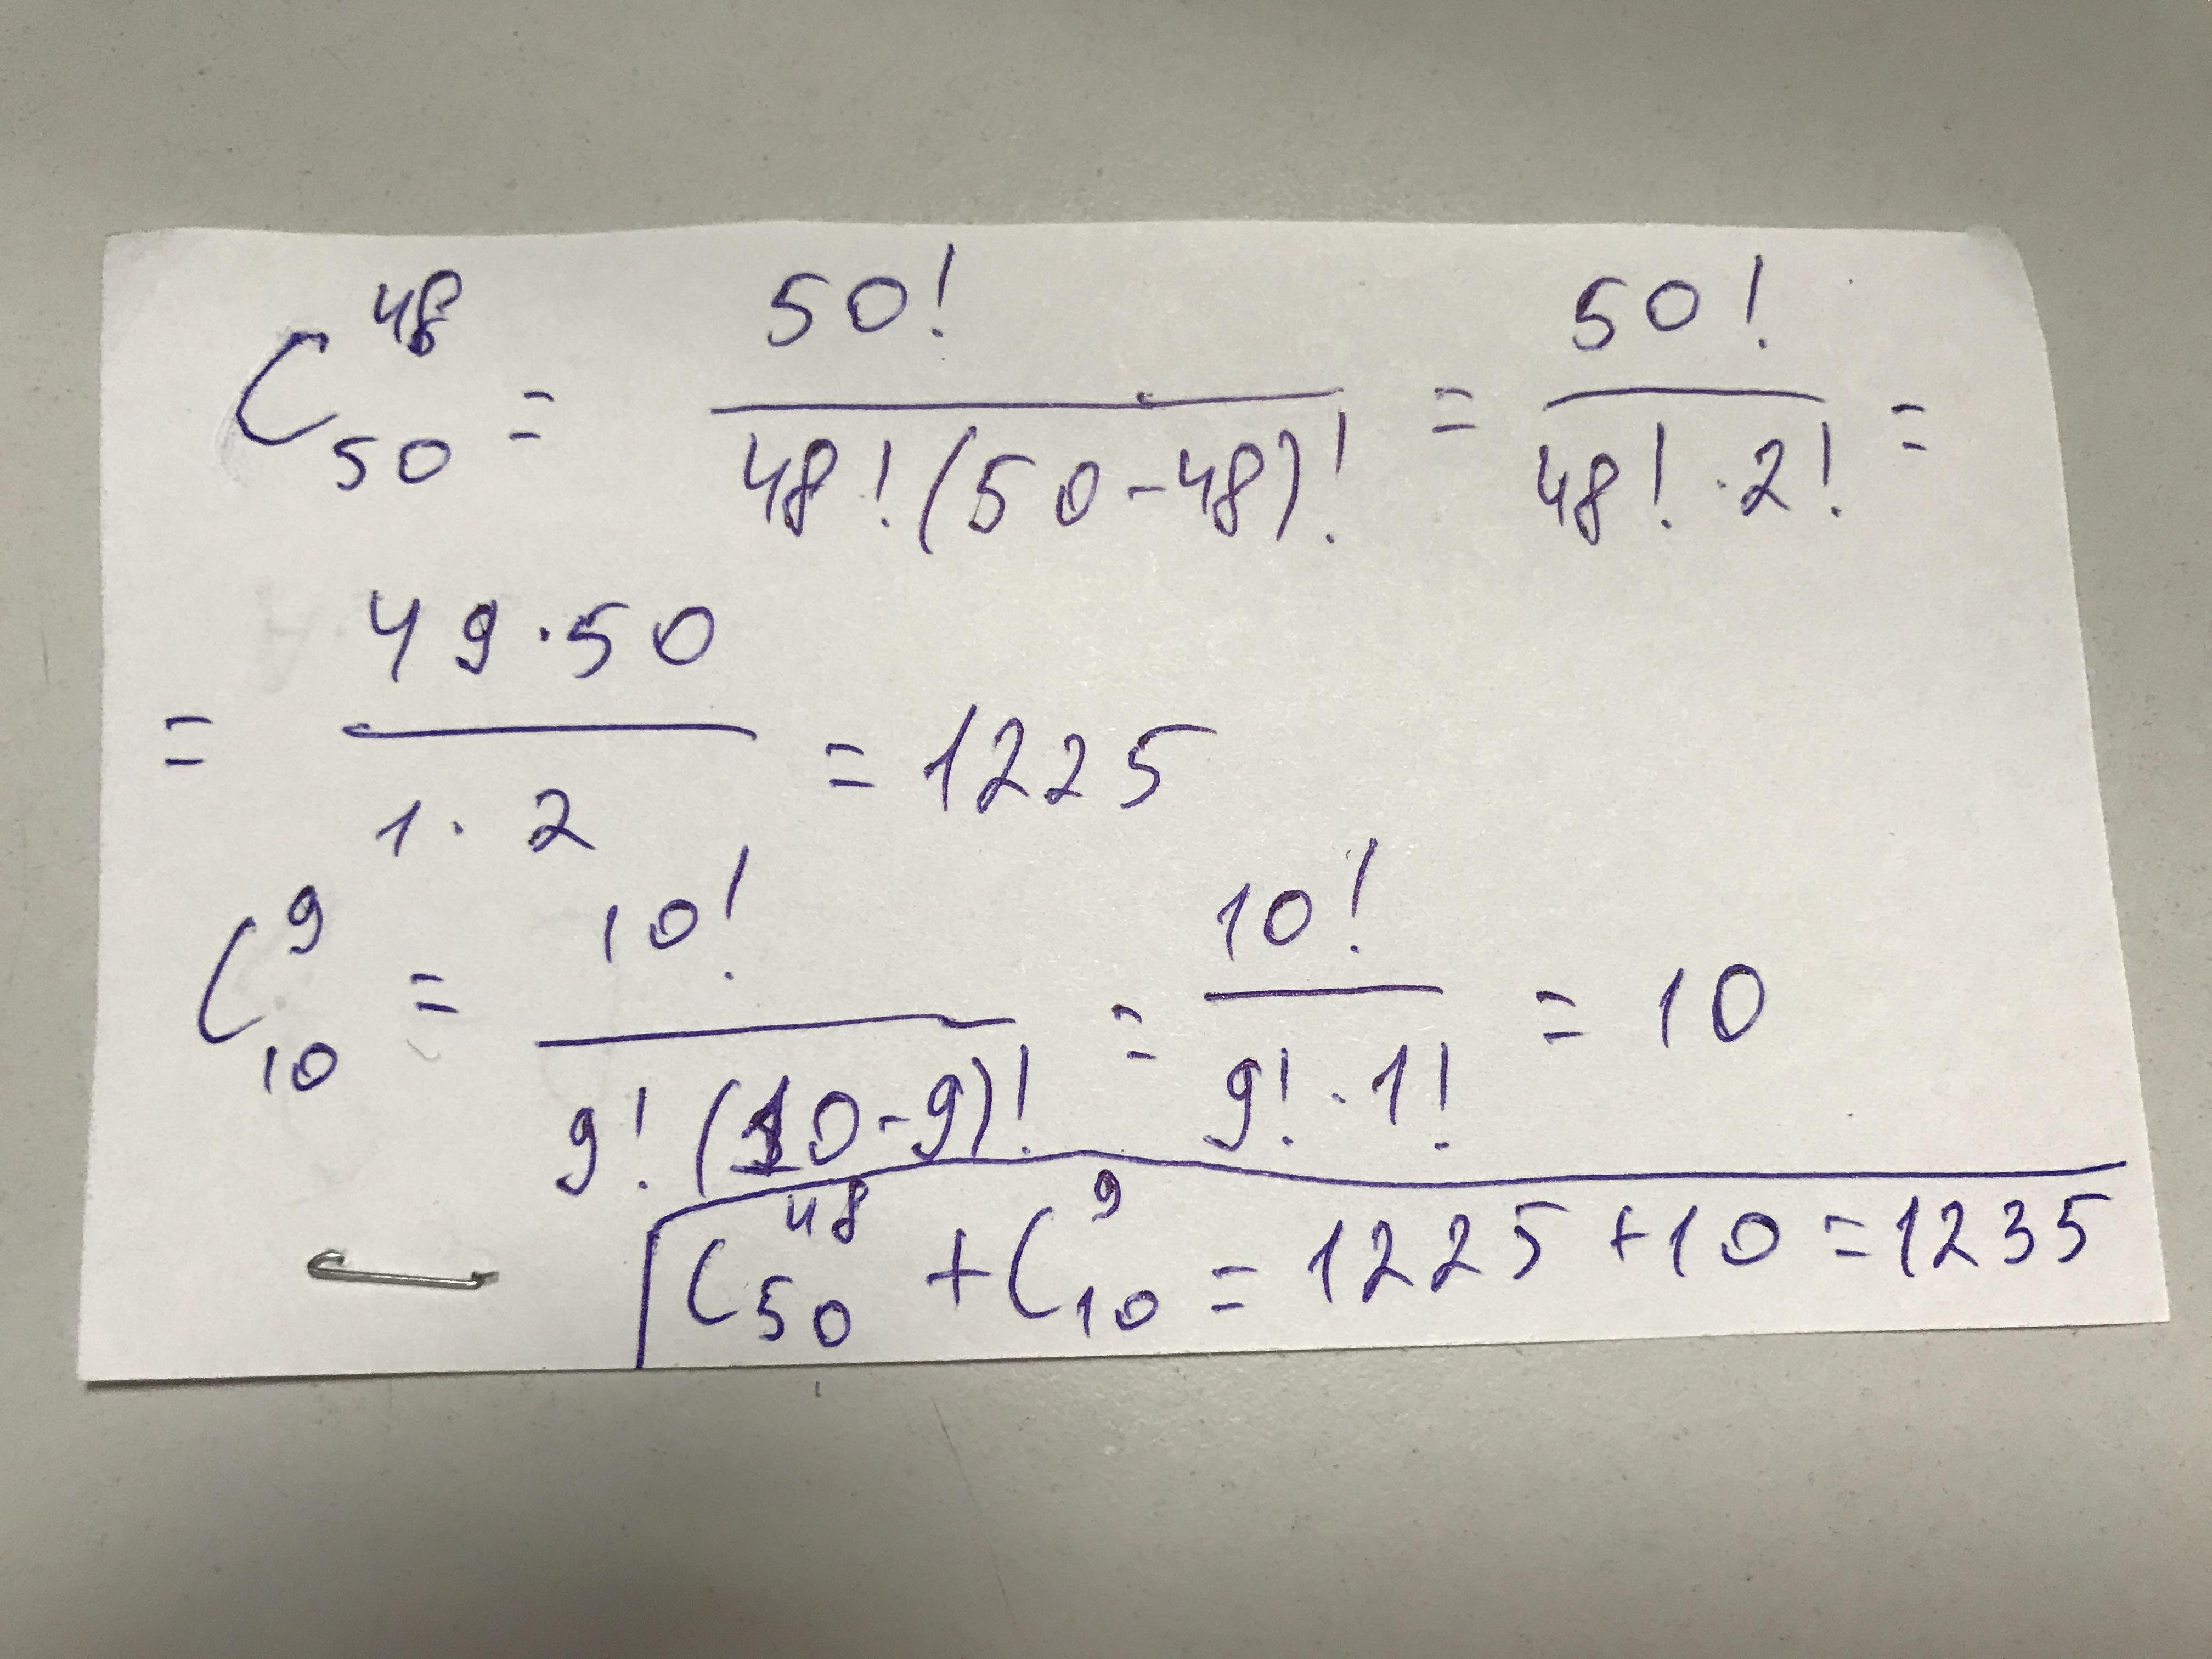 C₅₀⁴⁸ = 50! / 48!(50-48)! = 50! / 48!·2! =
= 49·50 / 1·2 = 1225
C₁₀⁹ = 10! / 9!(10-9)! = 10! / 9!·1! = 10
C₅₀⁴⁸ + C₁₀⁹ = 1225 + 10 = 1235